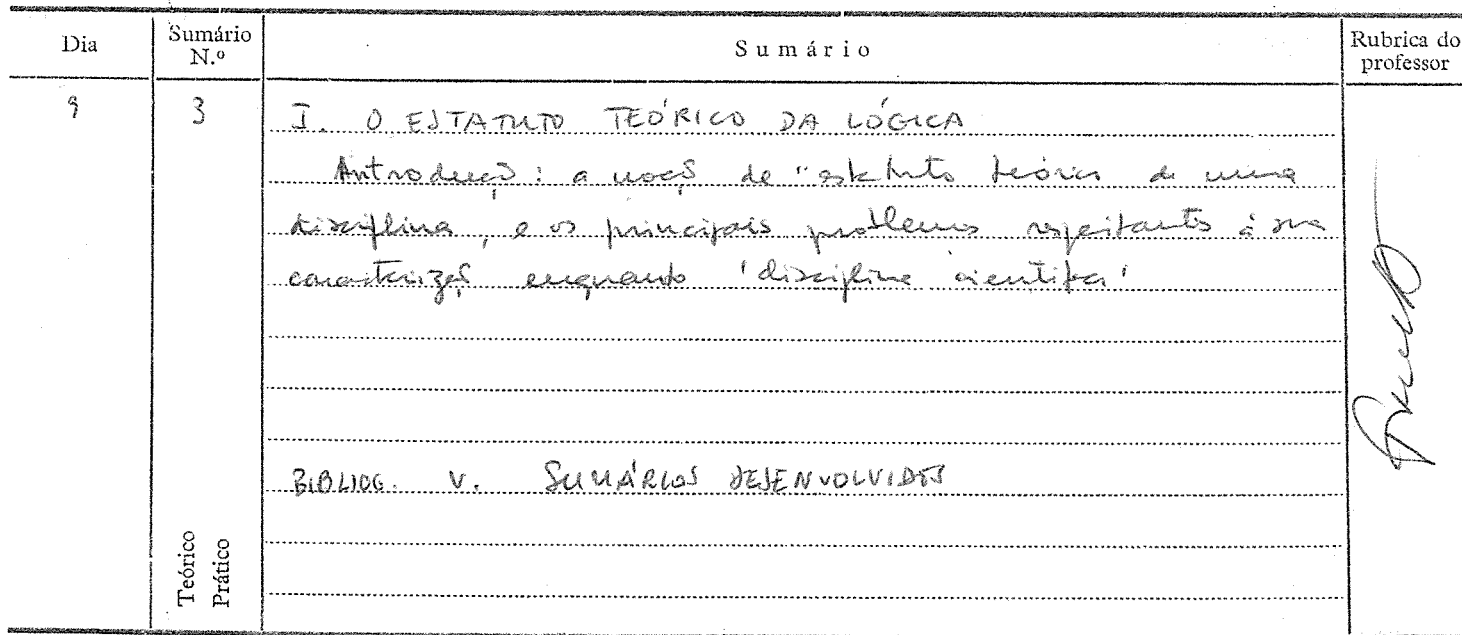 Dia Sumário N.º Sumário Rubrica do professor
9 3 I. O ESTATUTO TEÓRICO DA LÓGICA
Introducç: a noç de "estatuto teórico de uma
disciplina, e os principais problemas respeitantes à sua
caracterizaç enquanto 'disciplina científica'
BIBLIOG. V. SUMÁRIOS DESENVOLVIDOS
Teórico
Prático